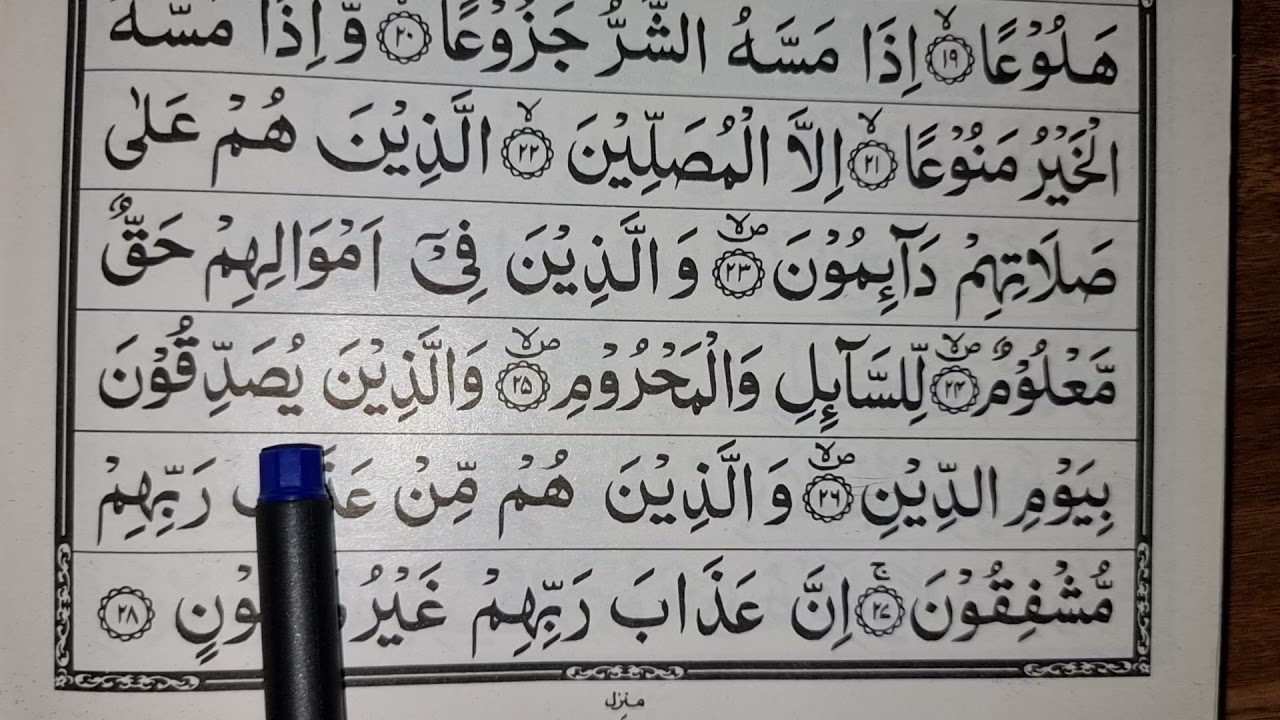 هَلُوْعًا ﴿۱۹﴾ۙ اِذَا مَسَّهُ الشَّرُّ جَزُوْعًا ﴿۲۰﴾ۙ وَّاِذَا مَسَّهُ
الْخَيْرُ مَنُوْعًا ﴿۲۱﴾ۙ اِلَّا الْمُصَلِّيْنَ ﴿۲۲﴾ۙ الَّذِيْنَ هُمْ عَلٰى
صَلَاتِهِمْ دَآئِمُوْنَ ﴿۲۳﴾ۙ وَالَّذِيْنَ فِىْۤ اَمْوَالِهِمْ حَقٌّ
مَّعْلُوْمٌ ﴿۲۴﴾ۙ لِّلسَّآئِلِ وَالْمَحْرُوْمِ ﴿۲۵﴾ۙ وَالَّذِيْنَ يُصَدِّقُوْنَ
بِيَوْمِ الدِّيْنِ ﴿۲۶﴾ۙ وَالَّذِيْنَ هُمْ مِّنْ رَبِّهِمْ
مُّشْفِقُوْنَ ﴿۲۷﴾ۚ اِنَّ عَذَابَ رَبِّهِمْ غَيْرُ ﴿۲۸﴾
منزل